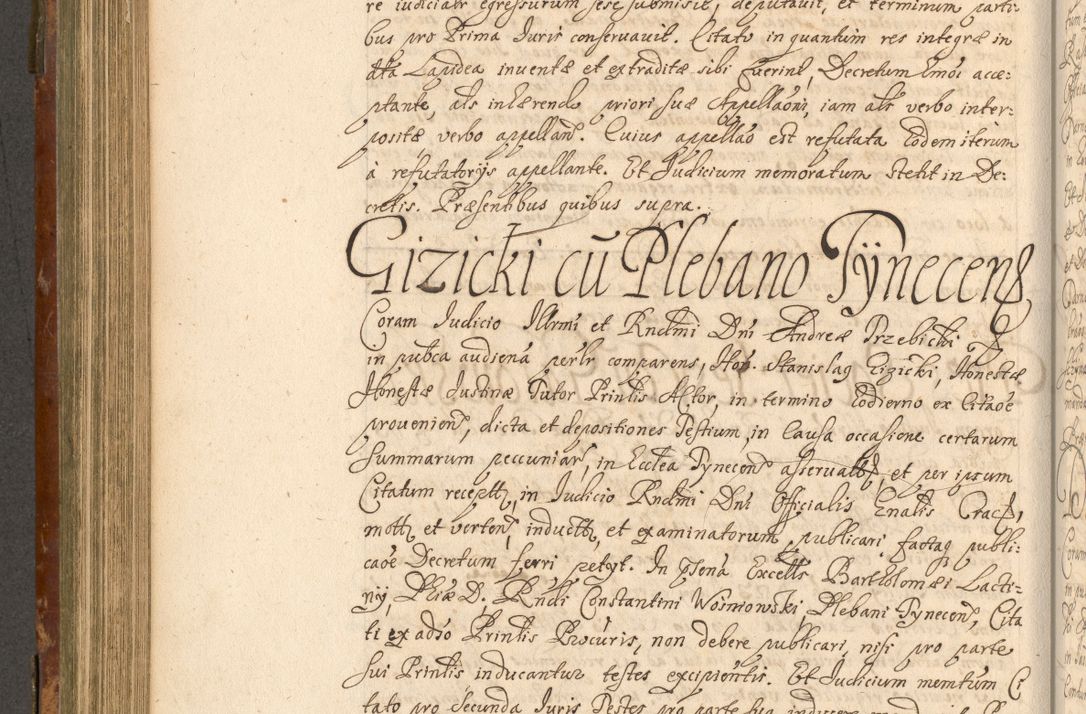 re iudicialr egressurum sese submisit, deputavit, et terminum parti-
bus pro Prima Iuris conservavit. Citato in quantum res integræ in
dta Lapidea inventæ et extraditæ sibi fuerint, Decretum hmoi acce:
ptante, als inhærendo priori suæ Appellaõni, iam als verbo inter:
positæ verbo appellant. Cuius appellaõ est refutata Eodem iterum
à refutatorijs appellante. Et Iudicium memoratum stetit in De:
cretis. Præsentibus quibus supra.
Gizicki cũ Plebano Tÿnecens
Coram Iudicio Illrmi et Rndmi Dni Andreæ Trzebicki
in pubca audiena perlr comparens, Hon. Stanislaq Gizicki, Honestæ
Honestæ Iustinæ Tutor Prinlis Actor, in termino hodierno ex Citaõe
provenien, dicta et depositiones Testium in Causa occasione certarum
Summarum peccuniar, in Ecclea Tynecens asservat, et per ipsum
Citatum recept, in Iudicio Rndmi Dni Officialis Gnalis Crac,
mott et verten, induct, et examinatorum publicari, factaq publi:
caõe Decretum ferri petyt. In psena Excells Bartholomæi Lacti:
nij, Phiæ D. Rndi Constantini Wosniowski Plebani Tynecens, Cita
ti ex adso Prinlis Procuris, non debere publicari, nisi pro parte
sui Prinlis inducantur testes excipientis. Et Iudicium memtum Ci
tato pro secunda Iuris Testes pro parte sua inducen